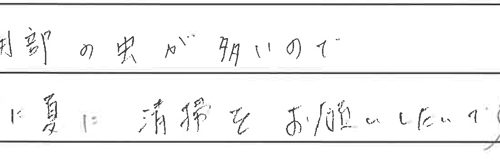 部の虫が多いので
に夏に清掃をお願いしたいで